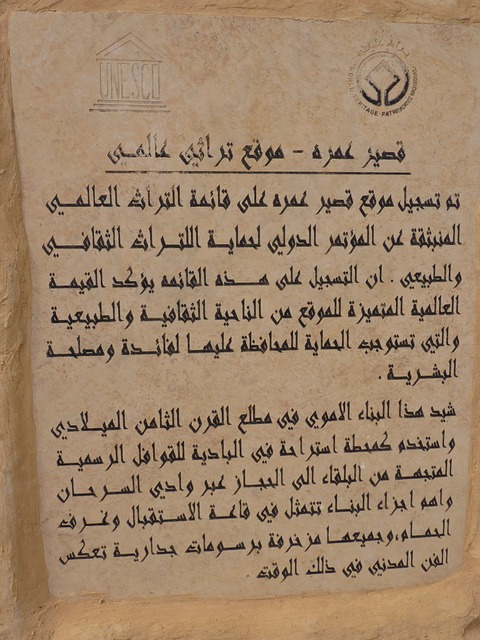 UNESCO
قصير عمره - موقع تراثي عالمي
تم تسجيل موقع قصير عمره على قائمة التراث العالمي
المنبثقة عن المؤتمر الدولي لحماية اللتراث الثقافي
والطبيعي . ان التسجيل على هذه القائمه يؤكد القيمة
العالمية المتميزة للموقع من الناحية الثقافية والطبيعية
والتي تستوجب الحماية للمحافظة عليها لفائدة ومصلحة
البشرية .
شيد هذا البناء الاموي في مطلع القرن الثامن الميلادي
واستخدم كمحطة استراحة في البادية للقوافل الرسمية
المتجهة من البلقاء الى الحجاز عبر وادي السرحان
واهم اجزاء البناء تتمثل في قاعة الاستقبال وغرف
الحمام،وجميعها مزخرفة برسومات جدارية تعكس
الفن المدني في ذلك الوقت .